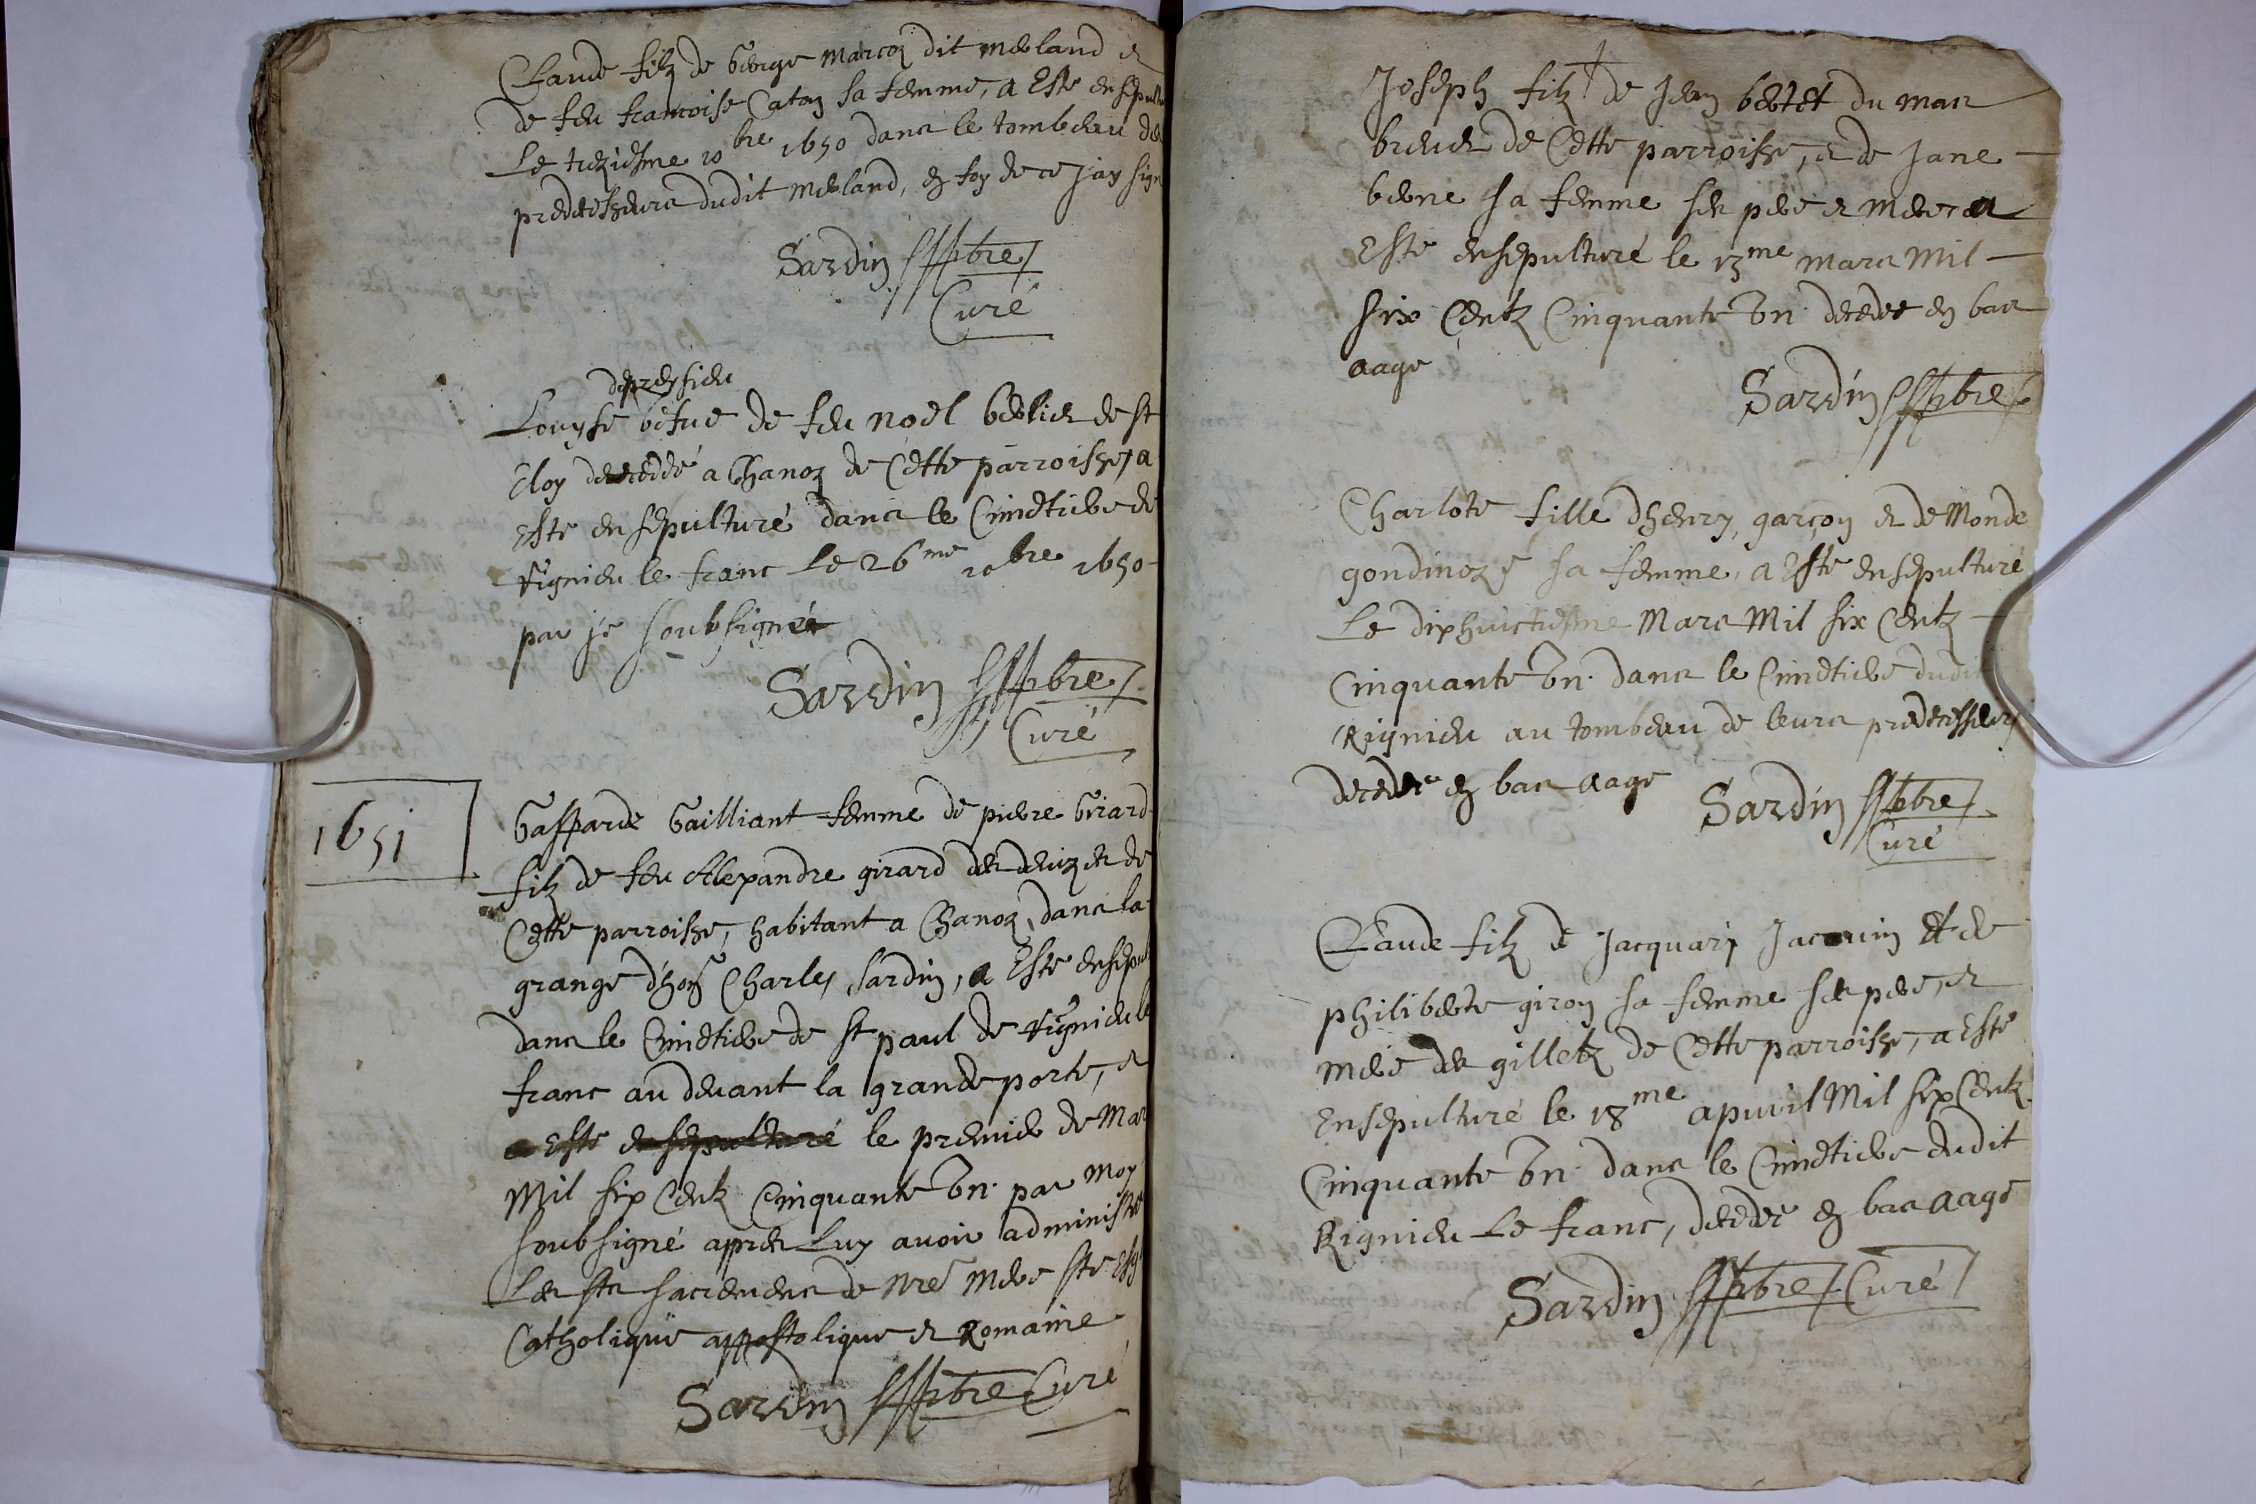 Claude filz de George Marcoz dit Merland et
de feu francoise Caton sa femme, a Esté ensepult
Le treziesme 10bre 1650 dans le tombeau des
predecesseurs dudit Merland, en foy de ce jay sign
Sardin pbre
Curé
depreyssieu
Louyse véfue de feu noël berlier de st
Eloy decedde a Chanoz de Cette parroisse, a
Esté ensepulturé dans le Cimetiere de
Rignieu le franc Le 26me 10bre 1650
par je soubsigné
Sardin pbre
Curé
1651
Gasparde Gailliant femme de pierre Girard
filz de feu Alexandre girard des deuzes de
Cette parroisse, habitant a Chanoz, dans la
grange d'hon Charles Sardin, a Esté ensepul
dans le Cimetiere de st paul de Rignieu le
franc au devant la grande porte, et
a Esté ensepulturé le premier de Mar
Mil six Centz Cinquante Un par moy
soubsigné appres Luy avoir administré
Les sts sacremens de nre Mere ste Esg
Catholique appostolique et Romaine
Sardin pbre Curé
Joseph filz de Jean bertet du mas
bruer de Cette parroisse, et de Jane
berne sa femme ses pere et mere a
Esté ensepulturé le 13me mars Mil
six Centz Cinquante Un decede en bas
aage
Sardin pbre
Charlote fille dhenry garçon et de Monde
gondinoze sa femme, a Esté ensepulturé
Le dixhuictiesme Mars Mil six Centz
Cinquante Un dans le Cimetiere dudit
Rignieu au tombeau de leurs predecesseurs
decedee en bas aage
Sardin pbre
Curé
Claude filz de Jacquary Jacquin et de
philiberte giron sa femme ses pere, et
mere des gilletz de Cette parroisse, a Esté
Ensepulturé le 18me apuril Mil six Centz
Cinquante Un dans le Cimetiere dudit
Rignieu Le franc, decedé en bas aage
Sardin pbre Curé